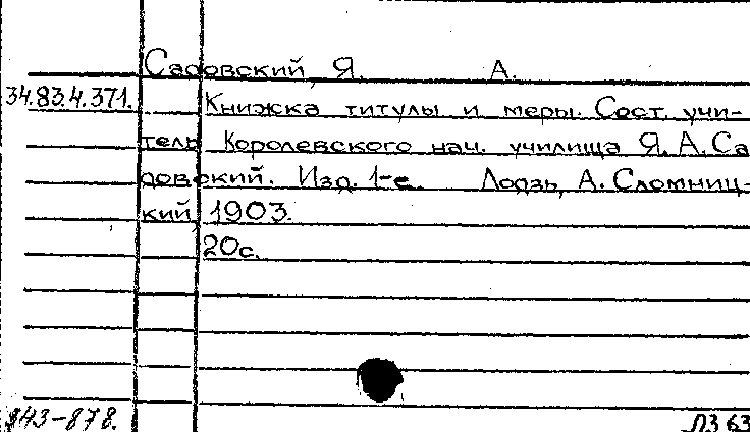 Садовский, Я. А.
34.83.4.371. Книжка титулы и меры. Сост. учи-
тель Королевского нач. училища Я. А. Са
довский. Изд. 1-е. Лодзь, А. Сломниц-
кий, 1903.
20с.
843-878. ЛЗ 63